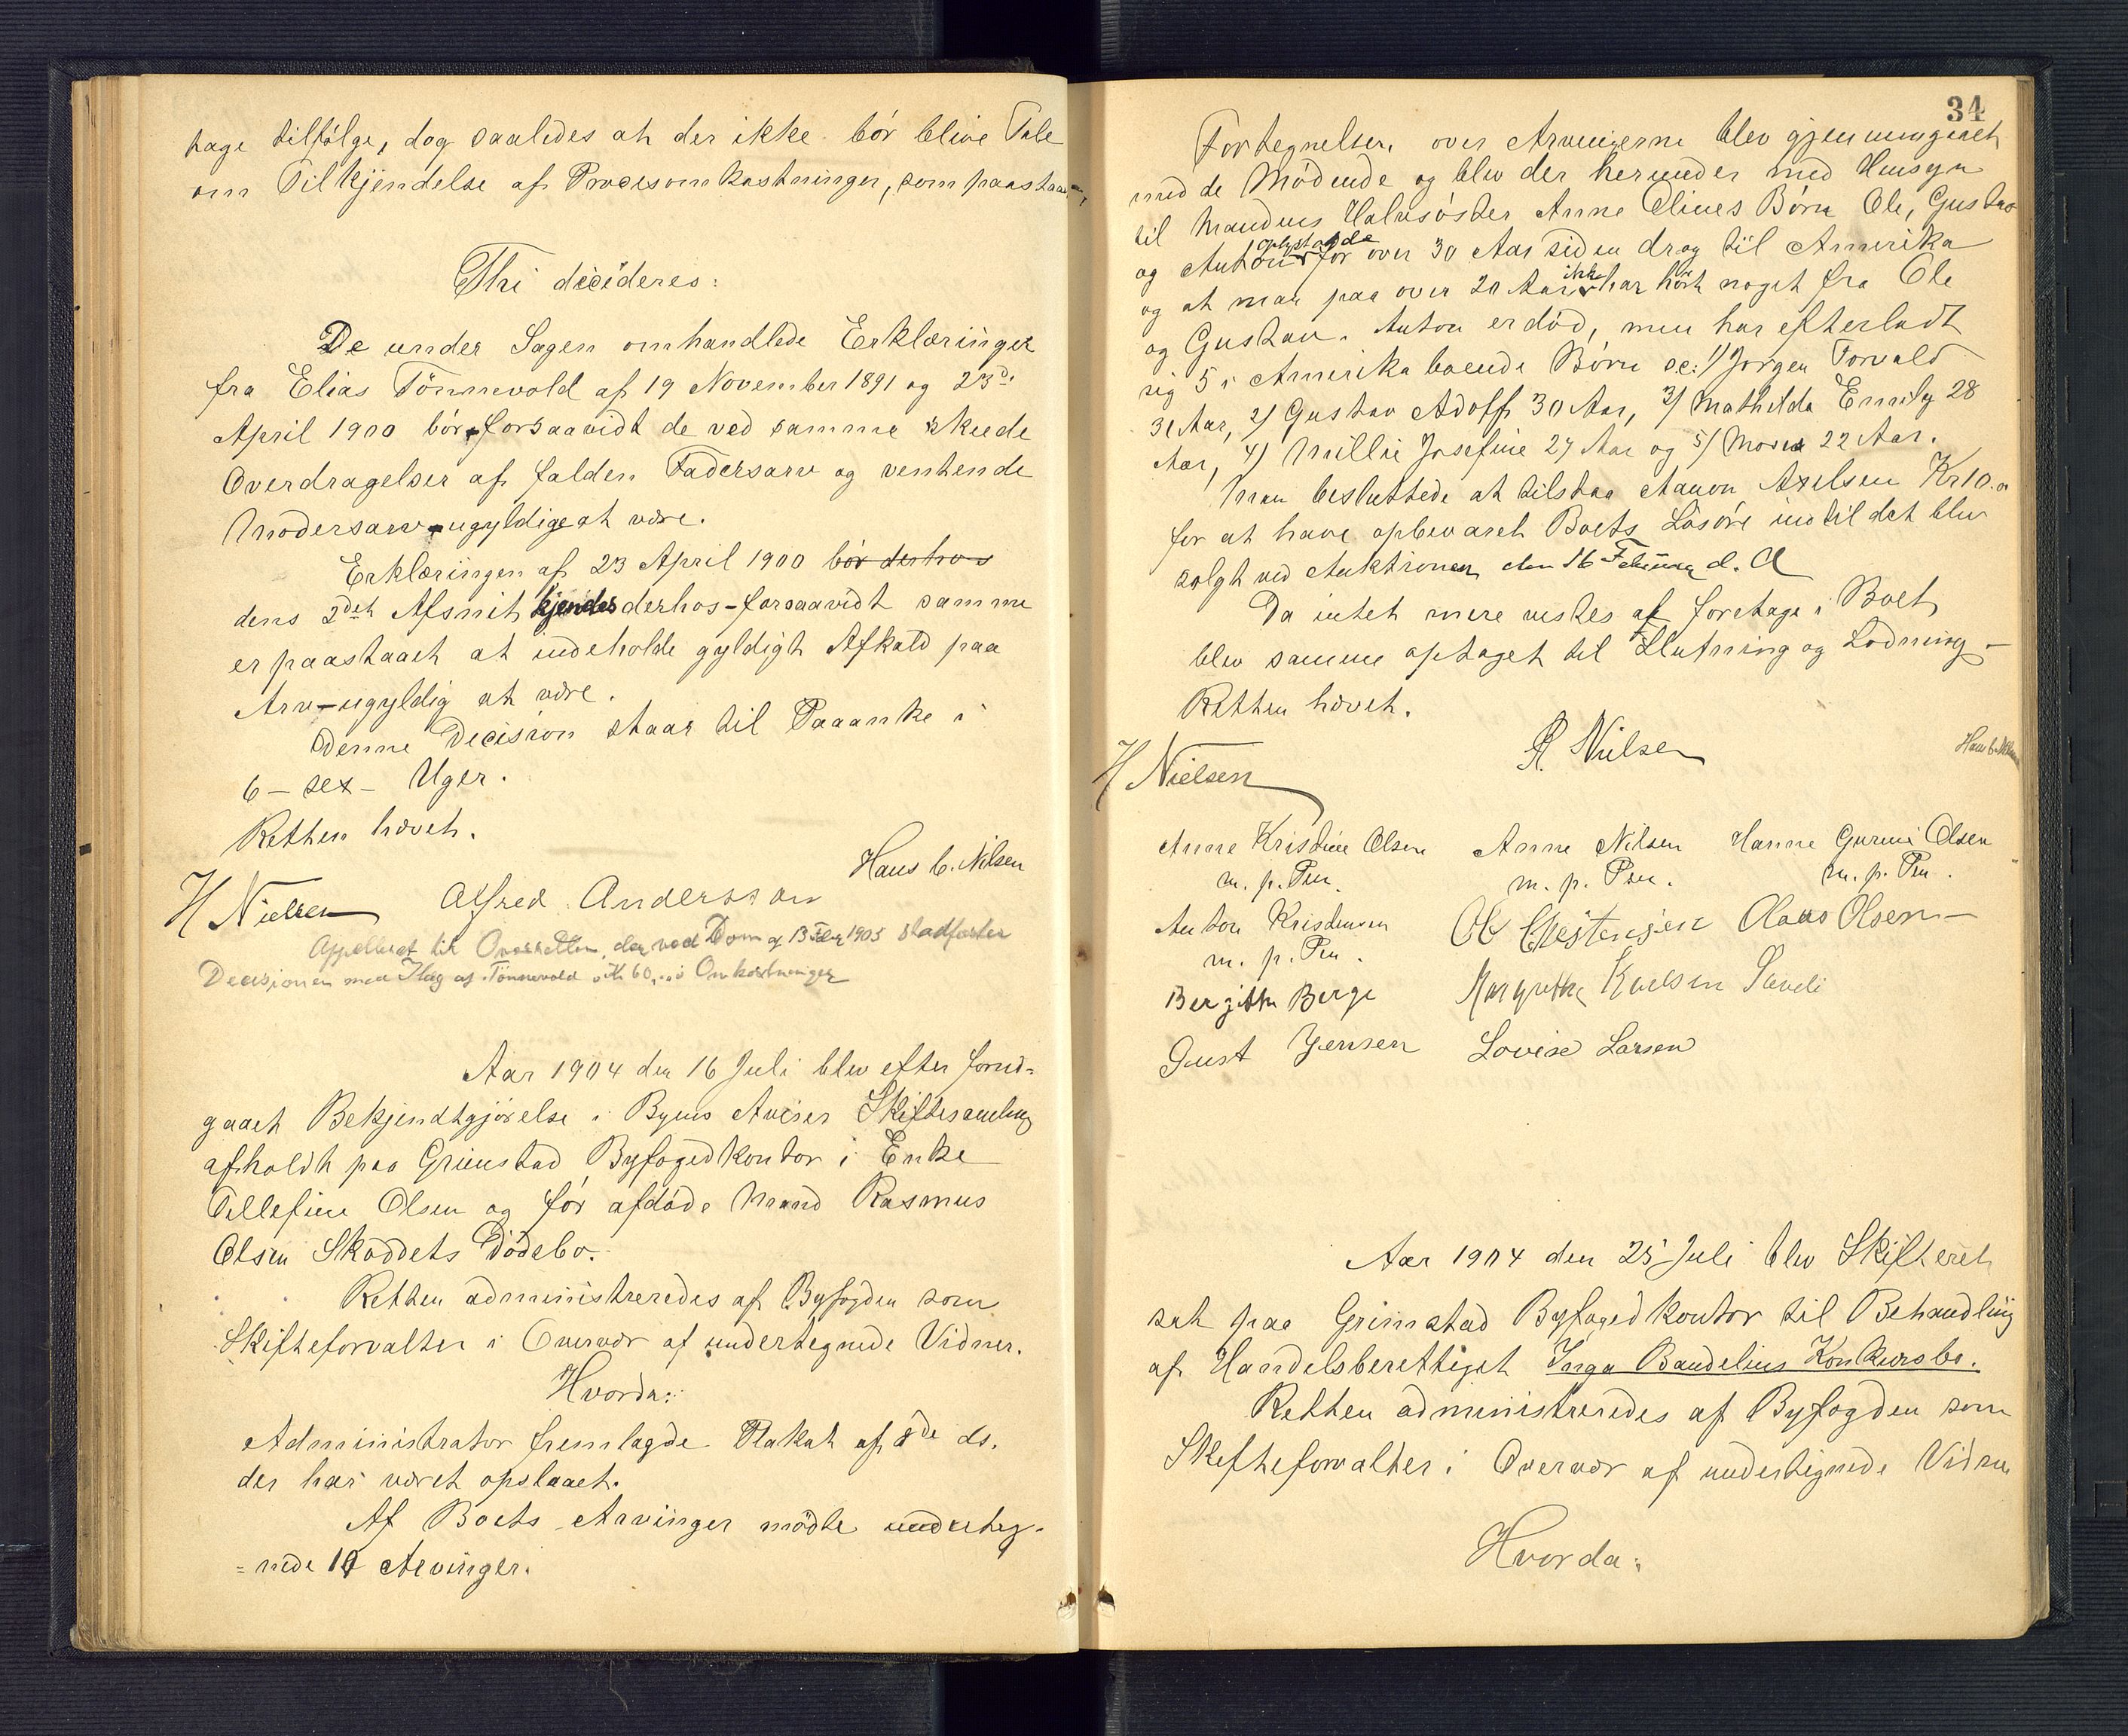 tage tilfølge, dog saaledes at der ikke bør blive Tale
om Tilkjendelse af Procesomkostninger, som paastaaet,
Thi decideres:
De under Sagen omhandlede Erklæringer
fra Elias Tönnevold af 19 November 1891 og 23di
April 1900 bør forsaavidt de ved samme skeede
Overdragelser af falden Fadersarv og ventende
Modersarv ugyldige at være.
Erklæringen af 23 April 1900 bör derhos
dens 2det Afsnit kjendes derhos - forsaavidt samme
er paastaaet at indeholde gyldigt Afkald paa
Arv - ugyldig at være.
Denne Decision staar til Paaanke i
6 - sex - Uger.
Retten hævet.
Hans C. Nilsen
H Nielsen Alfred Andersson
Appelleret til Overretten, der ved Dom af 13 Febr 1905 stadfæster
Decisionen med Ilæg af Tönnevold Kr 60,.. i Omkostninger
Aar 1904 den 16 Juli blev efter forud-
gaaet Bekjendtgjörelse i Byens Aviser Skiftesamling
afholdt paa Grimstad Byfogedkontor i Enke
Tellefine Olsen og før afdöde Mand Rasmus
Olsen Skoddets Dödsbo.
Retten administreredes af Byfogden som
Skifteforvalter i Overvær af undertegnede Vidner.
Hvorda:
Administrator fremlagde Plakat af 8de ds.
der har været opslaaet.
Af Boets Arvinger mödte underteg-
= nede 10 Arvinger.
34
Fortegnelsen over Arvingerne blev gjennemgaaet
med de Mödende og blev der herunder med Hensyn
til Mandens Halvsöster Anne Elines Börn Ole, Gustav
og Anton oplyst at de for over 30 Aar siden drog til Amerika
og at man paa over 20 Aar ikke har hört noget fra Ole
og Gustav. Anton er död, men har efterladt
sig 5 i Amerika boende Börn sc: 1/ Jorgen Torvald
31 Aar, 2/ Gustav Adolf 30 Aar, 3/ Mathilda Emily 28
Aar, 4/ Millie Josefine 27 Aar og 5/ 22 Aar.
Man besluttede at tilstaa Aanon Axelsen Kr 10.
for at have opbevaret Boets Lösöre indtil det blev
solgt ved Auktionen den 16 Februar d. A
Da intet mere vistes at foretage i Boet
blev samme optaget til Slutning og Lodning -
Retten hævet.
H Nielsen R. Nilsen Hans C. Nilsen
Anne Kristine Olsen Anne Nilsen Hanne Gurine Olsen
m. p. Pen. m. p. Pen. m. p. Pen.
Anton Kristensen Ole Olaus Olsen -
m. p. Pen.
Bergitte Berge Margrethe
Gust Jensen Lovise Larsen
Aar 1904 den 25 Juli blev Skifteret
sat paa Grimstad Byfogedkontor til Behandling
af Handelsberettiget Inga Baudelius Konkursbo.
Retten administreredes af Byfogden som
Skifteforvalter i Overvær af undertegnede Vidner
Hvorda: